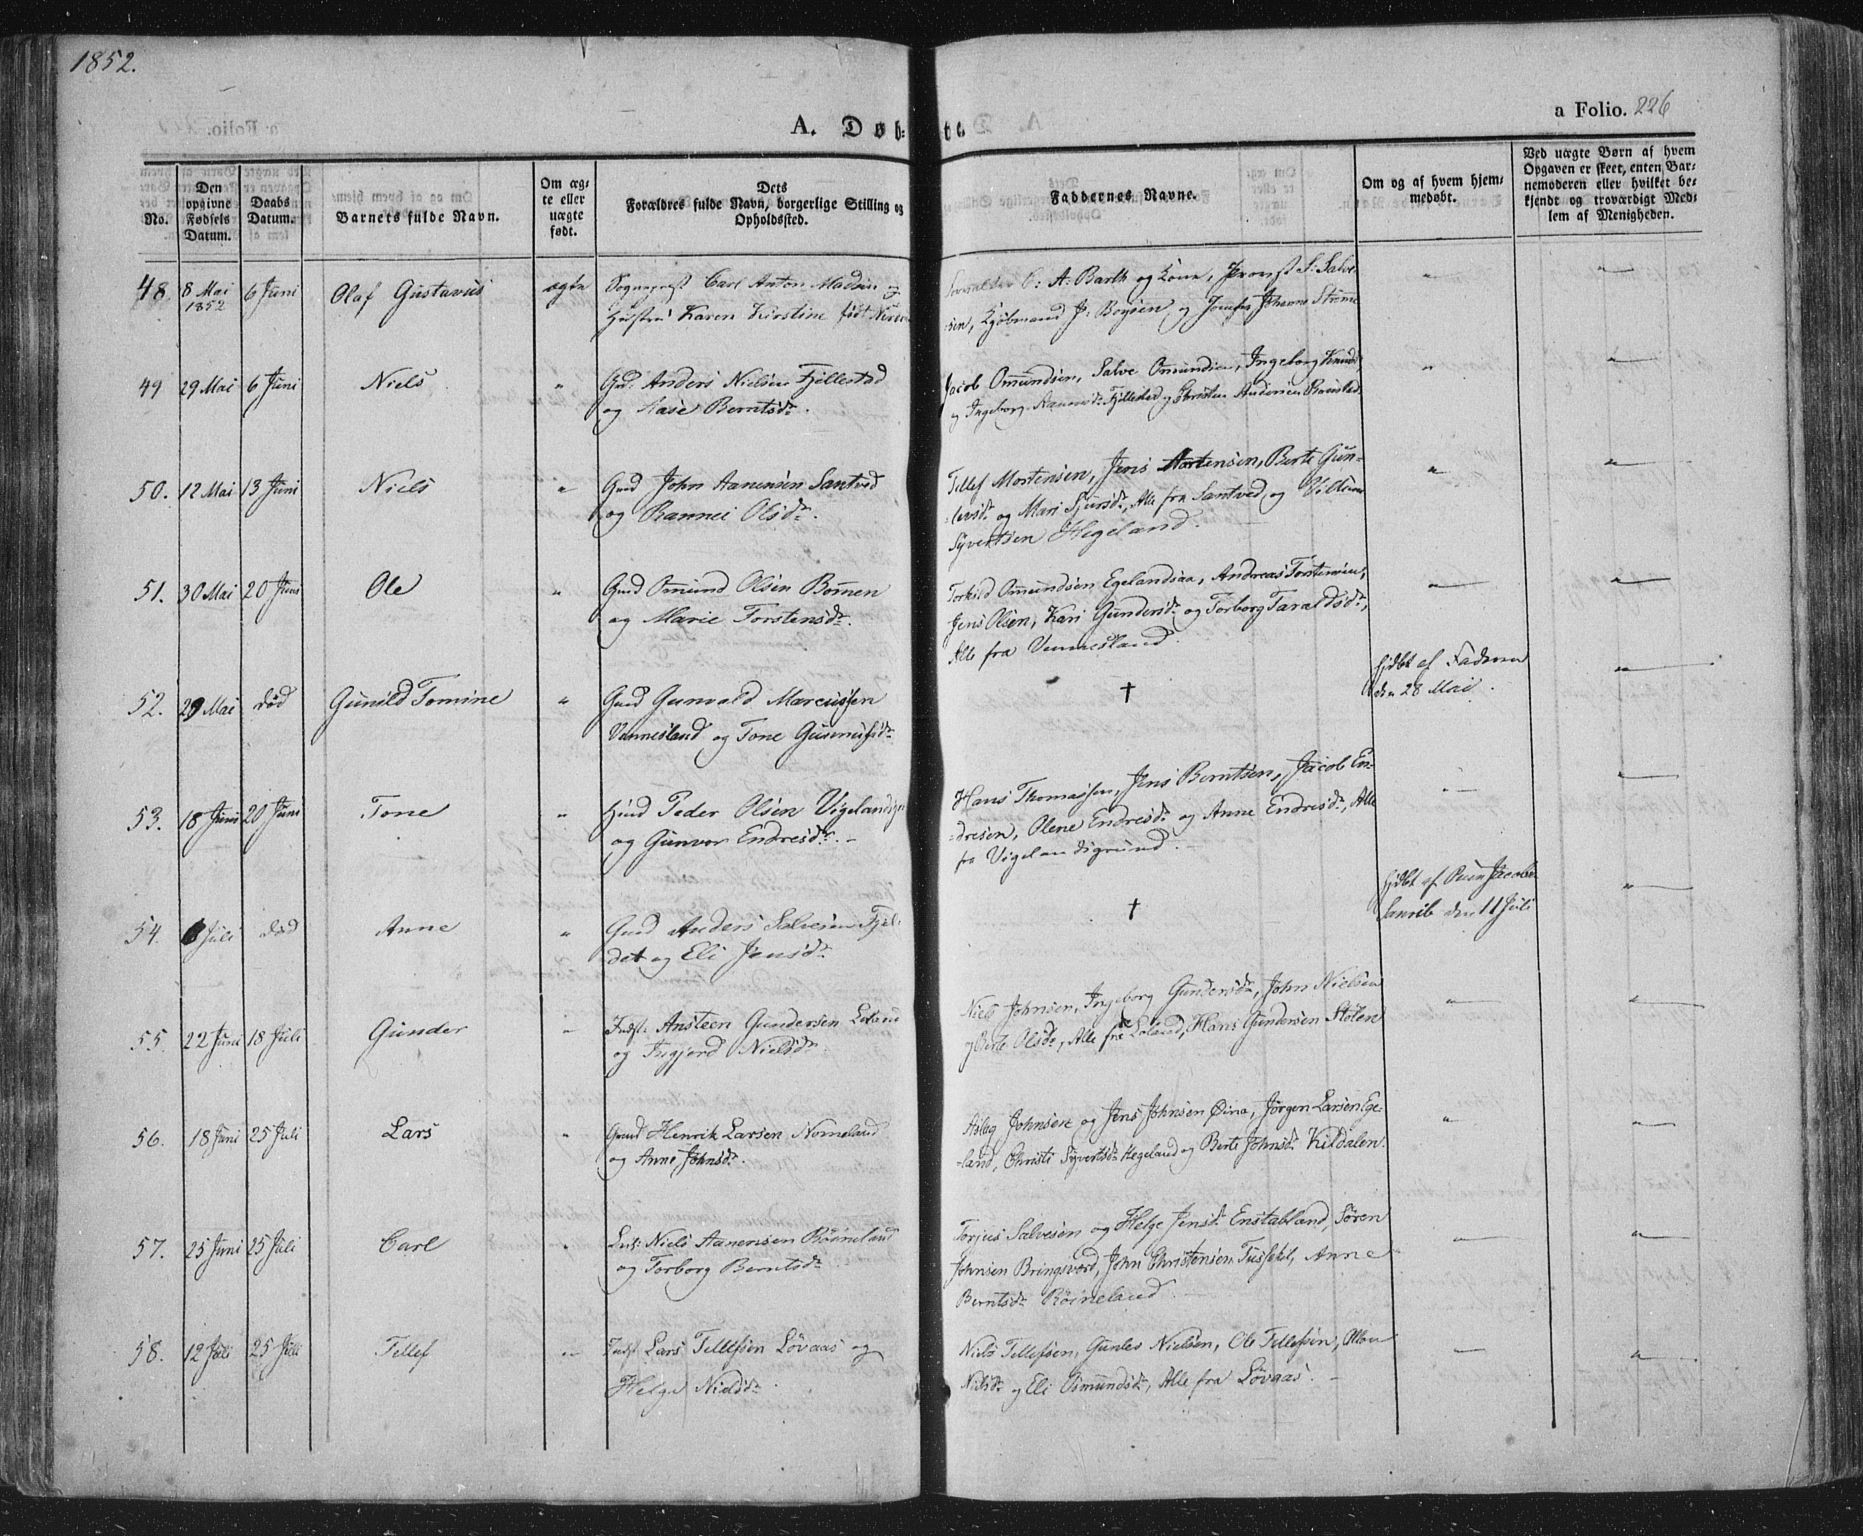 1852.
a Folio. 226
A. Døbte.
No.
Den opgivne Fødsels Datum.
Daabs Datum.
Barnets fulde Navn.
Om ægte eller uægte født.
Dets Forældres fulde Navn, borgerlige Stilling og Opholdssted.
Faddernes Navne.
Om og af hvem hjemmedøbt.
Ved uægte Børn af hvem Opgaven er skeet, enten Barnemoderen eller hvilket bekjendt og troværdigt Medlem af Menigheden.
48. 8 Mai 1852 6 Juni Olaf Gustavus ægte Sognepræst Carl Anton Madsen og
Hustru Karen Kirstine født
A: Barth og Kone, Provst S: Salve-
sen, Kjøbmand J: Boysen og Jomfru Johanne Strømme
49 29 Mai 6 Juni Niels " Gud. Anders Nielsen Fjellestad
og Aase Berntsdr.
Jacob Omundsen, Salve Omundsen, Ingeborg Knudsdr
og Ingeborg Aanensdr Fjellestad og Christen Andersen
50. 12 Mai 13 Juni Niels " Gmd John Aanensen Santved
og Rannei Olsdr.
Tellef Mortensen, Jens Mortensen, Berte Gun-
levsdr og Mari Sjursdr, Alle fra Santved, og Villum
Syvertsen Hegeland.
51. 30 Mai 20 Juni Ole " Gmd Omund Olsen Bommen
og Marie Torstensdr.
Torkild Omundsen Egelandsaa, Andreas Torstensen,
Jens Olsen, Kari Gundersdr og Torborg Taraldsdr,
Alle fra Vennesland.
52. 29 Mai død Gunild Tomine " Gmd Gunvald Marcussen
Vennesland og Tone Gunnufsdr
†
hjdbt af Faderen
den 28 Mai.
53. 18 Juni 20 Juni Tone " Hmd Peder Olsen Vigeland
og Gunvor Endresdr. -
Hans Thomassen, Jens Berntsen, Jacob En-
dresen, Olene Endresdr og Anne Endresdr, Alle
fra Vigelandsgrund. -
54. 6 Juli død Anne " Gmd Anders Salvesen Fjel-
det og Eli Jensdr
†
hjdbt af Peer Jacob-
den 11 Juli
55. 22 Juni 18 Juli Gunder " Indst. Ansteen Gundersen Loland
og Ingjerd Nielsdr.
Niels Johnsen, Ingeborg Gundersdr, John Nielsen
og Berte Olsdr, Alle fra Loland, Hans Gundersen Stølen
56. 18 Juni 25 Juli Lars " Gmd Henrik Larsen Nomeland
og Anne Johnsdr.
Aslag Johnsen og Jens Johnsen Øina, Jørgen Larsen Ege-
land, Christi Syvertsdr Hegeland og Berte Johnsdr Kildalen.
57. 25 Juni 25 Juli Carl " Niels Aanensen Røineland
og Torborg Berntsdr
Torjus Salvesen og Helge Jensdr Enstabland, Søren
Johnsen Bringsværd, John Christensen Anne
Berntsdr Røineland. -
58. 12 Juli 25 Juli Tellef " Indst Lars Tellefsen Løvaas og
Helge Nielsdr.
Niels Tellefsen, Gunles Nielsen, Ole Tellefsen,
Nilsdr og Eli Osmundsdr, Alle fra Løvaas. -